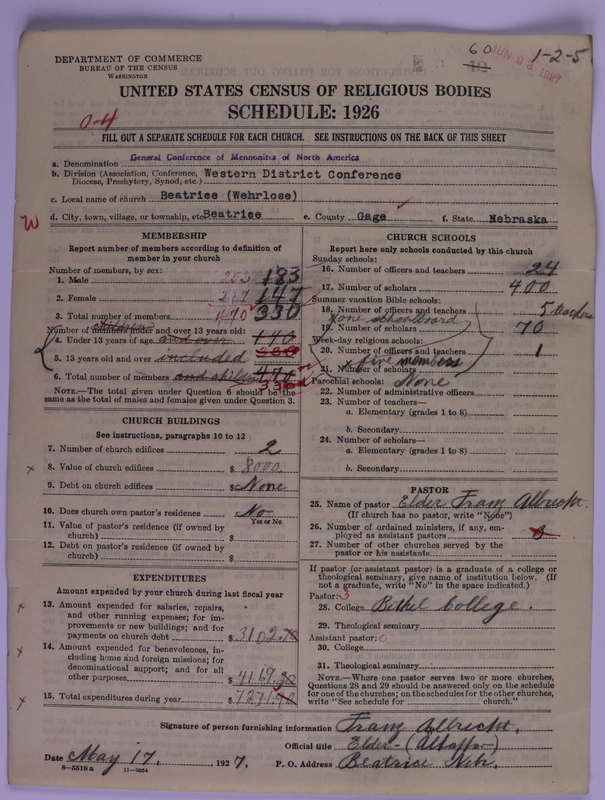 DEPARTMENT OF COMMERCE
BUREAU OF THE CENSUS
WASHINGTON
60
1-2-5
UNITED STATES CENSUS OF RELIGIOUS BODIES
SCHEDULE: 1926
0-4
FILL OUT A SEPARATE SCHEDULE FOR EACH CHURCH. SEE INSTRUCTIONS ON THE BACK OF THIS SHEET
a. Denomination General Conference of Mennonites of North America
b. Division (Association, Conference, Diocese, Presbytery, Synod, etc.) Western District Conference
c. Local name of church Beatrice (Wehrlose)
W
d. City, town, village, or township, etc. Beatrice e. County Gage f. State Nebraska
MEMBERSHIP
Report number of members according to definition of
member in your church
Number of members, by sex:
1. Male 253 183
2. Female 217 147
3. Total number of members 470 330
Number of members under and over 13 years old:
4. Under 13 years of age 140
5. 13 years old and over included
6. Total number of members and children 470 330
NOTE.—The total given under Question 6 should be the
same as the total of males and females given under Question 3.
CHURCH BUILDINGS
See instructions, paragraphs 10 to 12
7. Number of church edifices 2
x 8. Value of church edifices $ 8000
9. Debt on church edifices $ None
10. Does church own pastor's residence No
Yes or No
11. Value of pastor's residence (if owned by
church) $
12. Debt on pastor's residence (if owned by
church) $
EXPENDITURES
Amount expended by your church during last fiscal year
x 13. Amount expended for salaries, repairs,
and other running expenses; for im-
provements or new buildings; and for
payments on church debt $ 3102
x 14. Amount expended for benevolences, in-
cluding home and foreign missions; for
denominational support; and for all
other purposes $ 4169
x 15. Total expenditures during year $ 7271
CHURCH SCHOOLS
Report here only schools conducted by this church
Sunday schools:
16. Number of officers and teachers 24
17. Number of scholars 400
Summer vacation Bible schools:
18. Number of officers and teachers 5 teachers
x one schoolboard
19. Number of scholars 70
Week-day religious schools:
20. Number of officers and teachers 1
x five members
21. Number of scholars
Parochial schools: None
22. Number of administrative officers
23. Number of teachers—
a. Elementary (grades 1 to 8)
b. Secondary
24. Number of scholars—
a. Elementary (grades 1 to 8)
b. Secondary
PASTOR
25. Name of pastor Elder Franz Albrecht.
(If church has no pastor, write "None")
26. Number of ordained ministers, if any, em-
ployed as assistant pastors
27. Number of other churches served by the
pastor or his assistants
If pastor (or assistant pastor) is a graduate of a college or
theological seminary, give name of institution below. (If
not a graduate, write "No" in the space indicated.)
Pastor: 3
28. College Bethel College.
29. Theological seminary
Assistant pastor:
30. College
31. Theological seminary
NOTE.—Where one pastor serves two or more churches,
Questions 28 and 29 should be answered only on the schedule
for one of the churches; on the schedules for the other churches,
write "See schedule for church."
Signature of person furnishing information Franz Albrecht.
Official title Elder-
Date May 17, 1927. P. O. Address Beatrice Nebr.
8—5518 a 11—9034